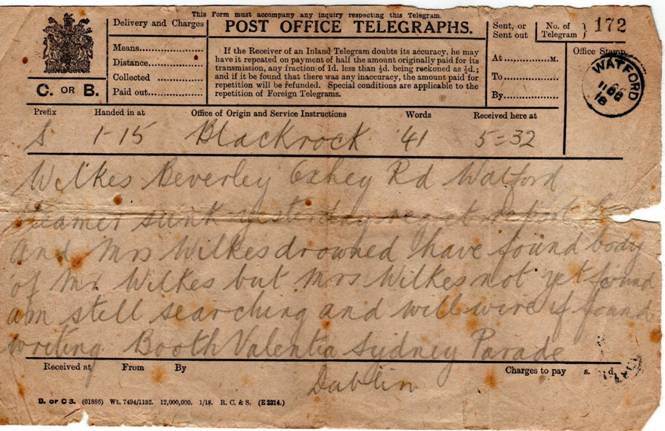 This Form must accompany any inquiry respecting this Telegram.
POST OFFICE TELEGRAPHS.
Delivery and Charges
Means
Distance
Collected
Paid out
C. OR B.
If the Receiver of an Inland Telegram doubts its accuracy, he may
have it repeated on payment of half the amount originally paid for its
transmission, any fraction of 1d. less than ½d. being reckoned as ½d.;
and if it be found that there was any inaccuracy, the amount paid for
repetition will be refunded. Special conditions are applicable to the
repetition of Foreign Telegrams.
Sent, or
Sent out
At M.
To
By
No. of
Telegram
172
Office Stamp.
WATFORD
18
Prefix Handed in at Office of Origin and Service Instructions Words Received here at
S 1-15 Blackrock 41 5=32
Wilkes Beverley Oxhey Rd Watford
Steamer sunk yesterday regret report
And Mrs Wilkes drowned I have found body
of Mr Wilkes but Mrs Wilkes not yet found
am still searching and will wire if found
writing Booth Valentia Sydney Parade
Dublin
Received at From By Charges to pay s. d.
B. or C B. Wt. 7494/1152. 12,000,000. 1/18. R. C. & S. (E 2314.)